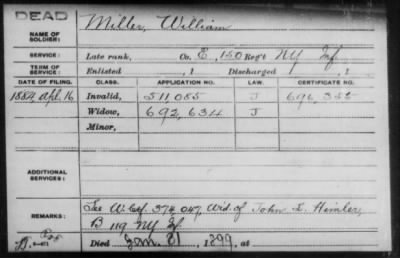 DEAD
NAME OF SOLDIER: Miller, William
SERVICE: Late rank, Co. E, 150 Reg't NY Inf
TERM OF SERVICE: Enlisted , 1 Discharged , 1
DATE OF FILING. CLASS. APPLICATION NO. LAW. CERTIFICATE NO.
1884, Apl. 16 Invalid, 511,085 J
Widow, 692,634 J
Minor,
ADDITIONAL SERVICES:
REMARKS: See W. Ctf. 374,047, Wid. of John
B 119 NY Inf
Died Jan. 31, 1899, at